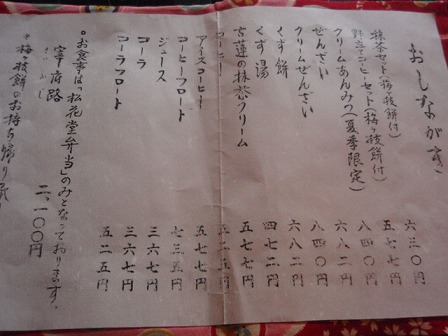 おしながき
抹茶セット(梅ヶ枝餅付) 六三〇円
コーヒーセット(梅ヶ枝餅付) 五七七円
クリームあんみつ(夏季限定) 八四〇円
ぜんざい 六八二円
クリームぜんざい 八四〇円
くず餅 六八二円
くず湯 四七二円
古蓮の抹茶クリーム 五七七円
コーヒー
アイスコーヒー 五七七円
コーヒーフロート 七三五円
ジュース 三六七円
コーラ 三六七円
コーラフロート 五二五円
お食事は「松花堂弁当」のみとなっております。
宰府路 二、一〇〇円
梅ヶ枝餅のお持ち帰り